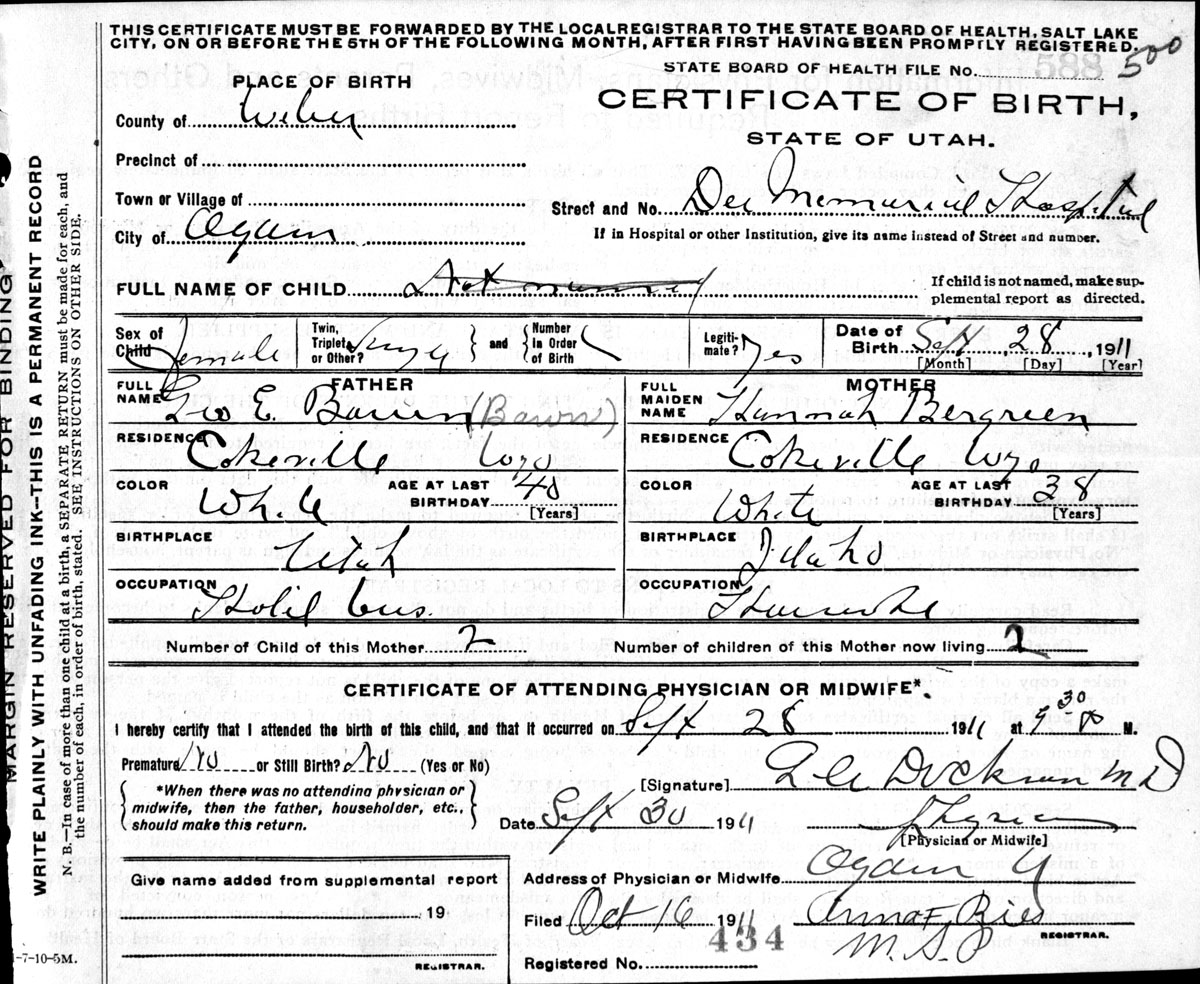 THIS CERTIFICATE MUST BE FORWARDED BY THE LOCAL REGISTRAR TO THE STATE BOARD OF HEALTH, SALT LAKE
CITY, ON OR BEFORE THE 5TH OF THE FOLLOWING MONTH, AFTER FIRST HAVING BEEN PROMPTLY REGISTERED.
STATE BOARD OF HEALTH FILE No. 500
PLACE OF BIRTH
CERTIFICATE OF BIRTH,
STATE OF UTAH.
County of Weber
Precinct of
Town or Village of
Street and No. Dee Memorial Hospital
City of Ogden
If in Hospital or other Institution, give its name instead of Street and number.
FULL NAME OF CHILD. Not named
If child is not named, make sup-
plemental report as directed.
Sex of Child Female
Twin, Triplet, or Other? and Number In Order of Birth
Legiti- mate? Yes
Date of Birth Sept 28, 1911
[Month] [Day] [Year]
FATHER
FULL NAME Geo E. Bawn (Bawn)
MOTHER
FULL MAIDEN NAME Hannah Bergreen
RESIDENCE Cokeville Wyo
RESIDENCE Cokeville Wyo
COLOR White AGE AT LAST BIRTHDAY 40 [Years]
COLOR White AGE AT LAST BIRTHDAY 38 [Years]
BIRTHPLACE Utah
BIRTHPLACE Idaho
OCCUPATION Hotel bus.
OCCUPATION Housewife
Number of Child of this Mother 2
Number of children of this Mother now living 2
CERTIFICATE OF ATTENDING PHYSICIAN OR MIDWIFE*.
I hereby certify that I attended the birth of this child, and that it occurred on Sept 28 1911 at 9 30 P M.
Premature No or Still Birth? No (Yes or No)
[Signature] M D
*When there was no attending physician or
midwife, then the father, householder, etc.,
should make this return.
Date Sept 30 1911
Physician
[Physician or Midwife]
Give name added from supplemental report
Address of Physician or Midwife Ogden U
19
Filed Oct 6 1911
REGISTRAR.
434
Registered No.
REGISTRAR.
1-7-10-5M.
MARGIN RESERVED FOR BINDING
WRITE PLAINLY WITH UNFADING INK—THIS IS A PERMANENT RECORD
N. B.—In case of more than one child at a birth, a SEPARATE RETURN must be made for each, and
the number of each, in order of birth, stated. SEE INSTRUCTIONS ON OTHER SIDE.